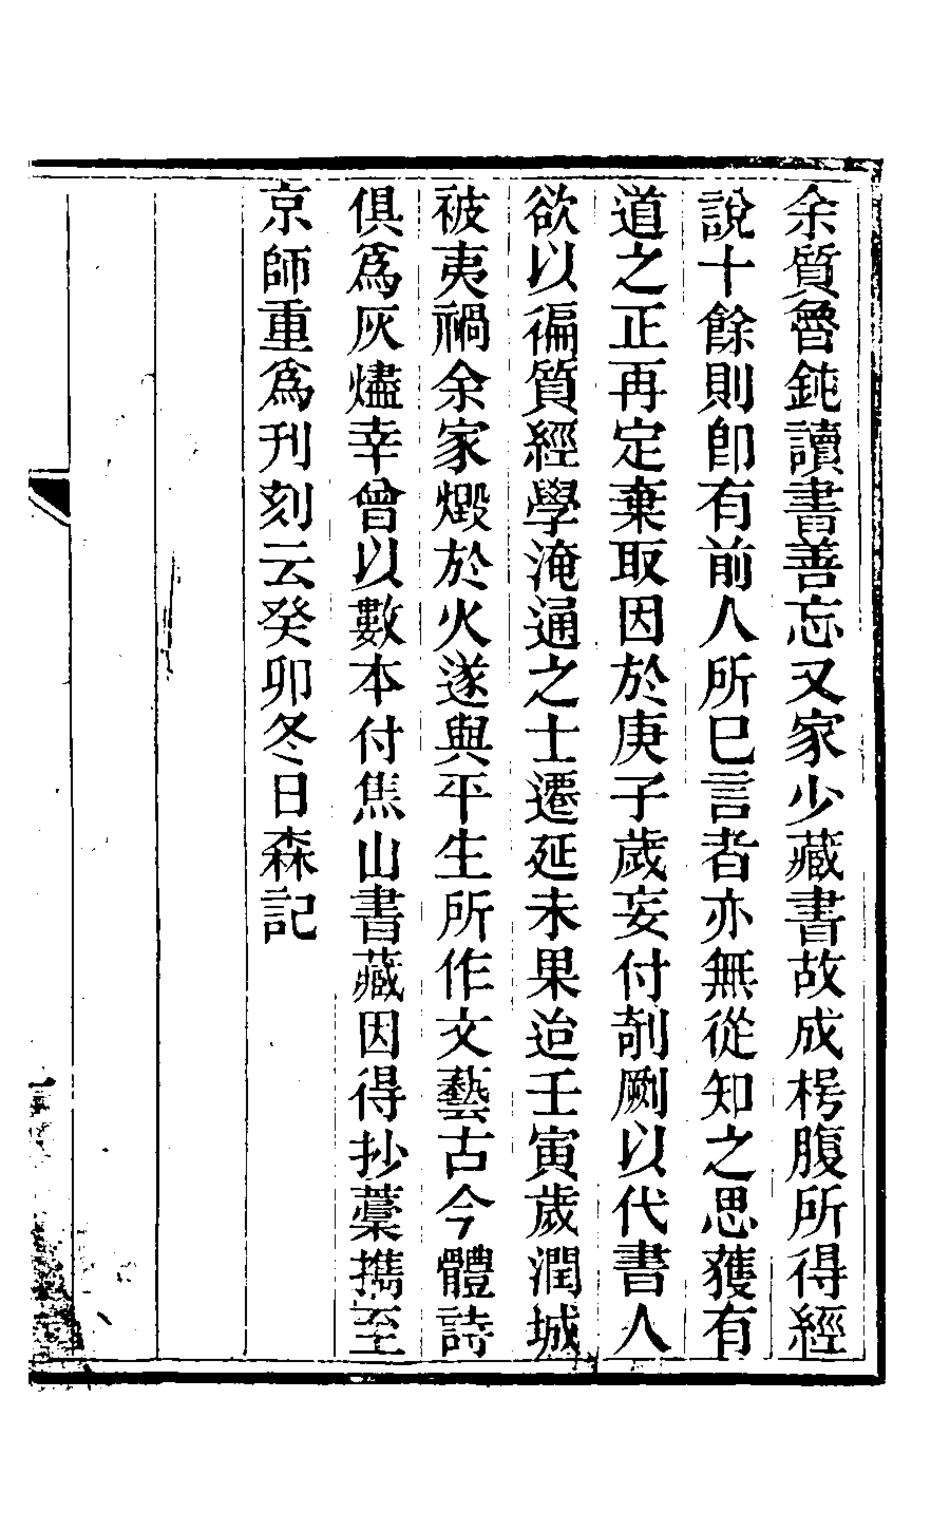 余質魯鈍讀書善忘又家少藏書故成枵腹所得經
說十餘則卽有前人所巳言者亦無從知之思獲有
道之正再定棄取因於庚子歲妄付剞劂以代書人
欲以徧質經學淹通之士遷延未果迨壬寅歲潤城
被夷禍余家燬於火遂與平生所作文藝古今體詩
俱爲灰燼幸曾以數本付焦山書藏因得抄藁攜至
京師重爲刊刻云癸卯冬日森記
一